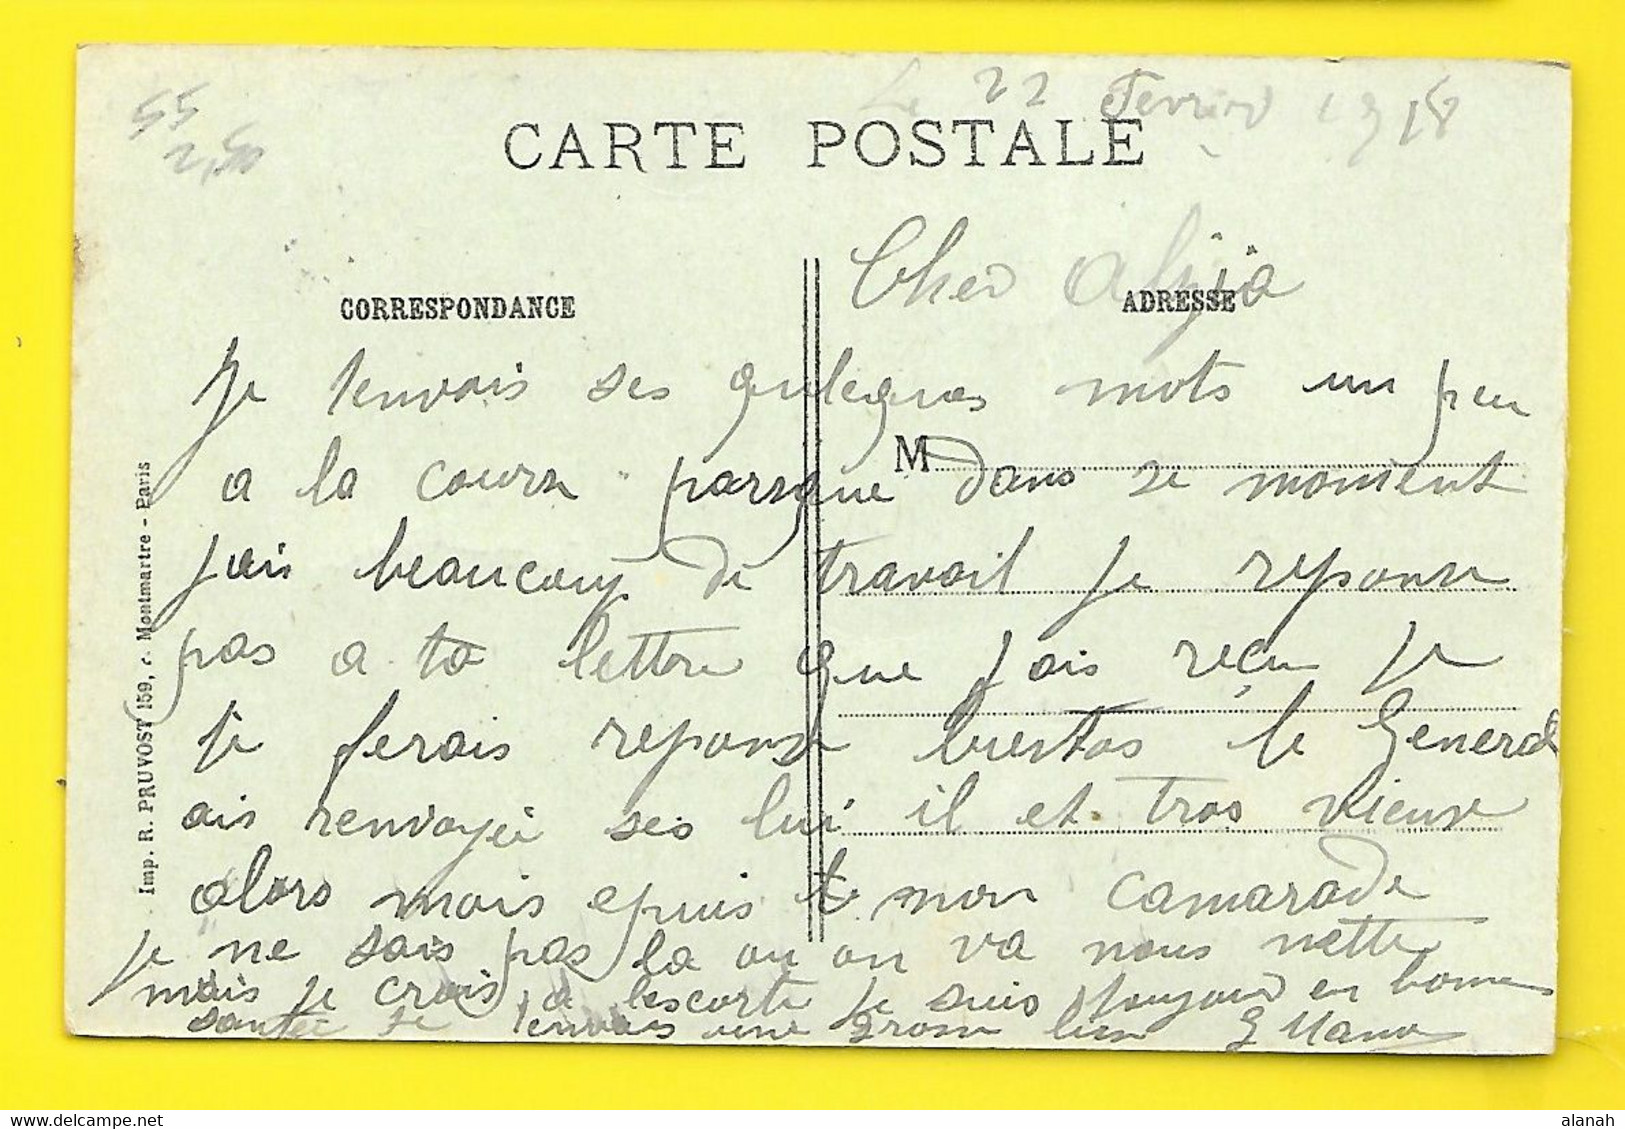 55
2,50
Le 22 Fevrier 1918
CARTE POSTALE
Cher
CORRESPONDANCE
ADRESSE
Je tenvois ses qulegues mots un peu
M
a la course parsque dans se moment
jais beaucoup de travail je reponse
pas a ta lettre que jais reçu je
je ferais reponse bientos le General
ais renvoyéé ses lui il et tros vieux
alors mois epuis mon camarade
je ne sais pas la ou on va nous mettre
mais je crois a lescorte je suis toujour en bonne
santée je tenvois une grosse
Imp. R. PRUVOST 159, r. Montmartre - Paris
alanah